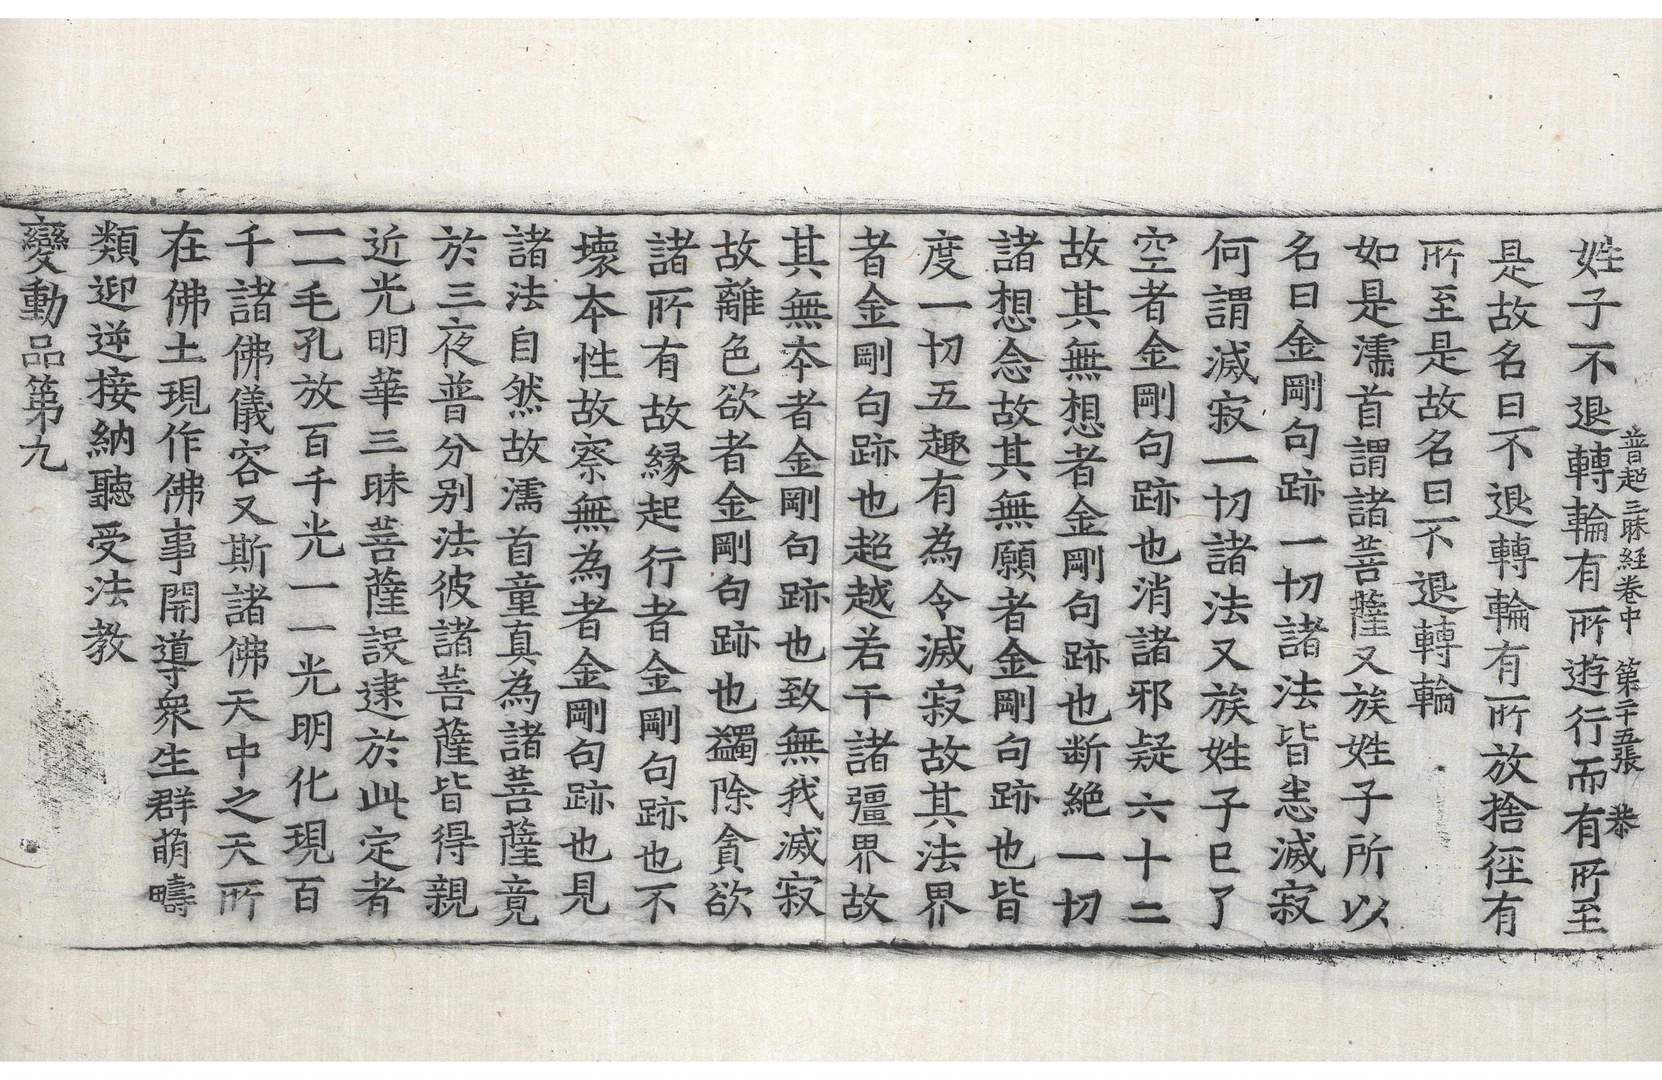 普超三昧經卷中　第二十五張　恭
姓子不退轉輪有所遊行而有所至
是故名曰不退轉輪有所放捨徑有
所至是故名曰不退轉輪
如是濡首謂諸菩薩又族姓子所以
名曰金剛句跡一切諸法皆悉滅寂
何謂滅寂一切諸法又族姓子已了
空者金剛句跡也消諸邪疑六十二
故其無想者金剛句跡也断絶一切
諸想念故其無願者金剛句跡也皆
度一切五趣有為令滅寂故其法界
者金剛句跡也超越若干諸彊界故
其無夲者金剛句跡也致無我滅寂
故離色欲者金剛句跡也蠲除貪欲
諸所有故緣起行者金剛句跡也不
壞本性故察無為者金剛句跡也見
諸法自然故濡首童真為諸菩薩竟
於三夜普分别法彼諸菩薩皆得親
近光明華三昧菩薩設逮於此定者
一一毛孔放百千光一一光明化現百
千諸佛儀容又斯諸佛天中之天所
在佛土現作佛事開導衆生群萌疇
類迎逆接納聽受法教
變動品第九